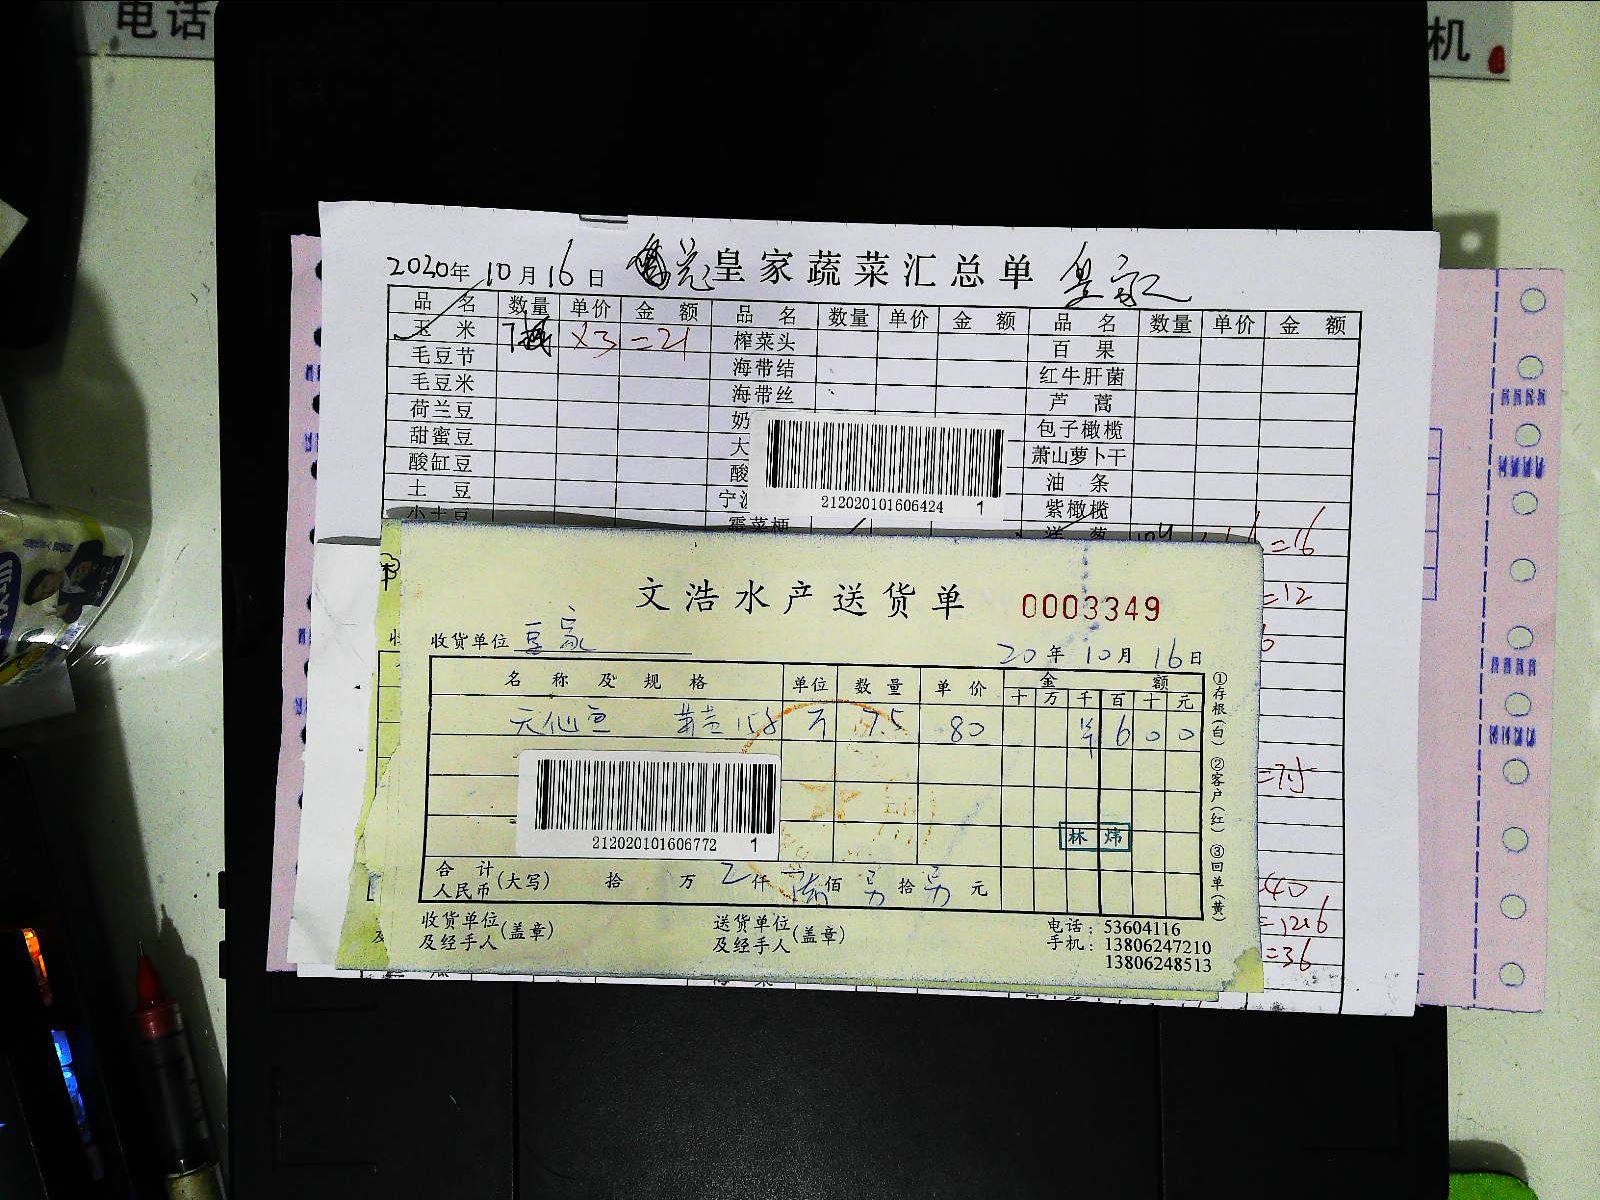 电话
机
2020年 10月16日 皇家蔬菜汇总单 皇家
品名 数量 单价 金额 品名 数量 单价 金额 品名 数量 单价 金额
玉米 7 ×3 =21 榨菜头 百果
毛豆节 海带结 红牛肝菌
毛豆米 海带丝 芦蒿
荷兰豆 奶 包子橄榄
甜蜜豆 大 萧山萝卜干
酸缸豆 酸 油条
土豆 宁波 紫橄榄
小土豆 霉菜梗 洋葱 =16
212020101606424 1
=12
=75
=1216
=36
文浩水产送货单 0003349
收货单位 皇家
20年10月16日
名称及规格 单位 数量 单价 金额
十万千百十元
7.5 80 6 0 0
212020101606772 1
林炜
合计人民币(大写) 拾 万 仟 佰 拾 元
收货单位及经手人(盖章) 送货单位及经手人(盖章)
电话:53604116
手机:13806247210
13806248513
①存根(白) ②客户(红) ③回单(黄)